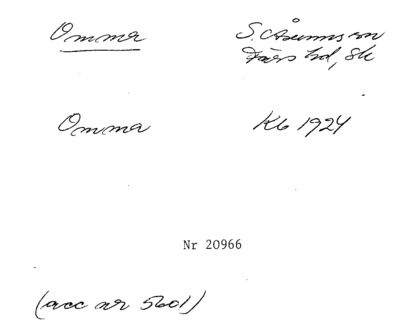 Omma S. Åsum sn
Färs hd, Sk
Omma Kb 1924
Nr 20966
(acc nr 5601)